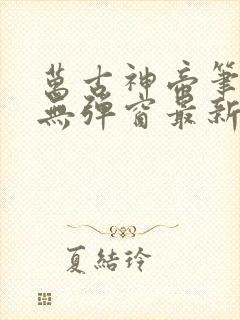 萬古神帝筆
無彈窗最新
夏結玲